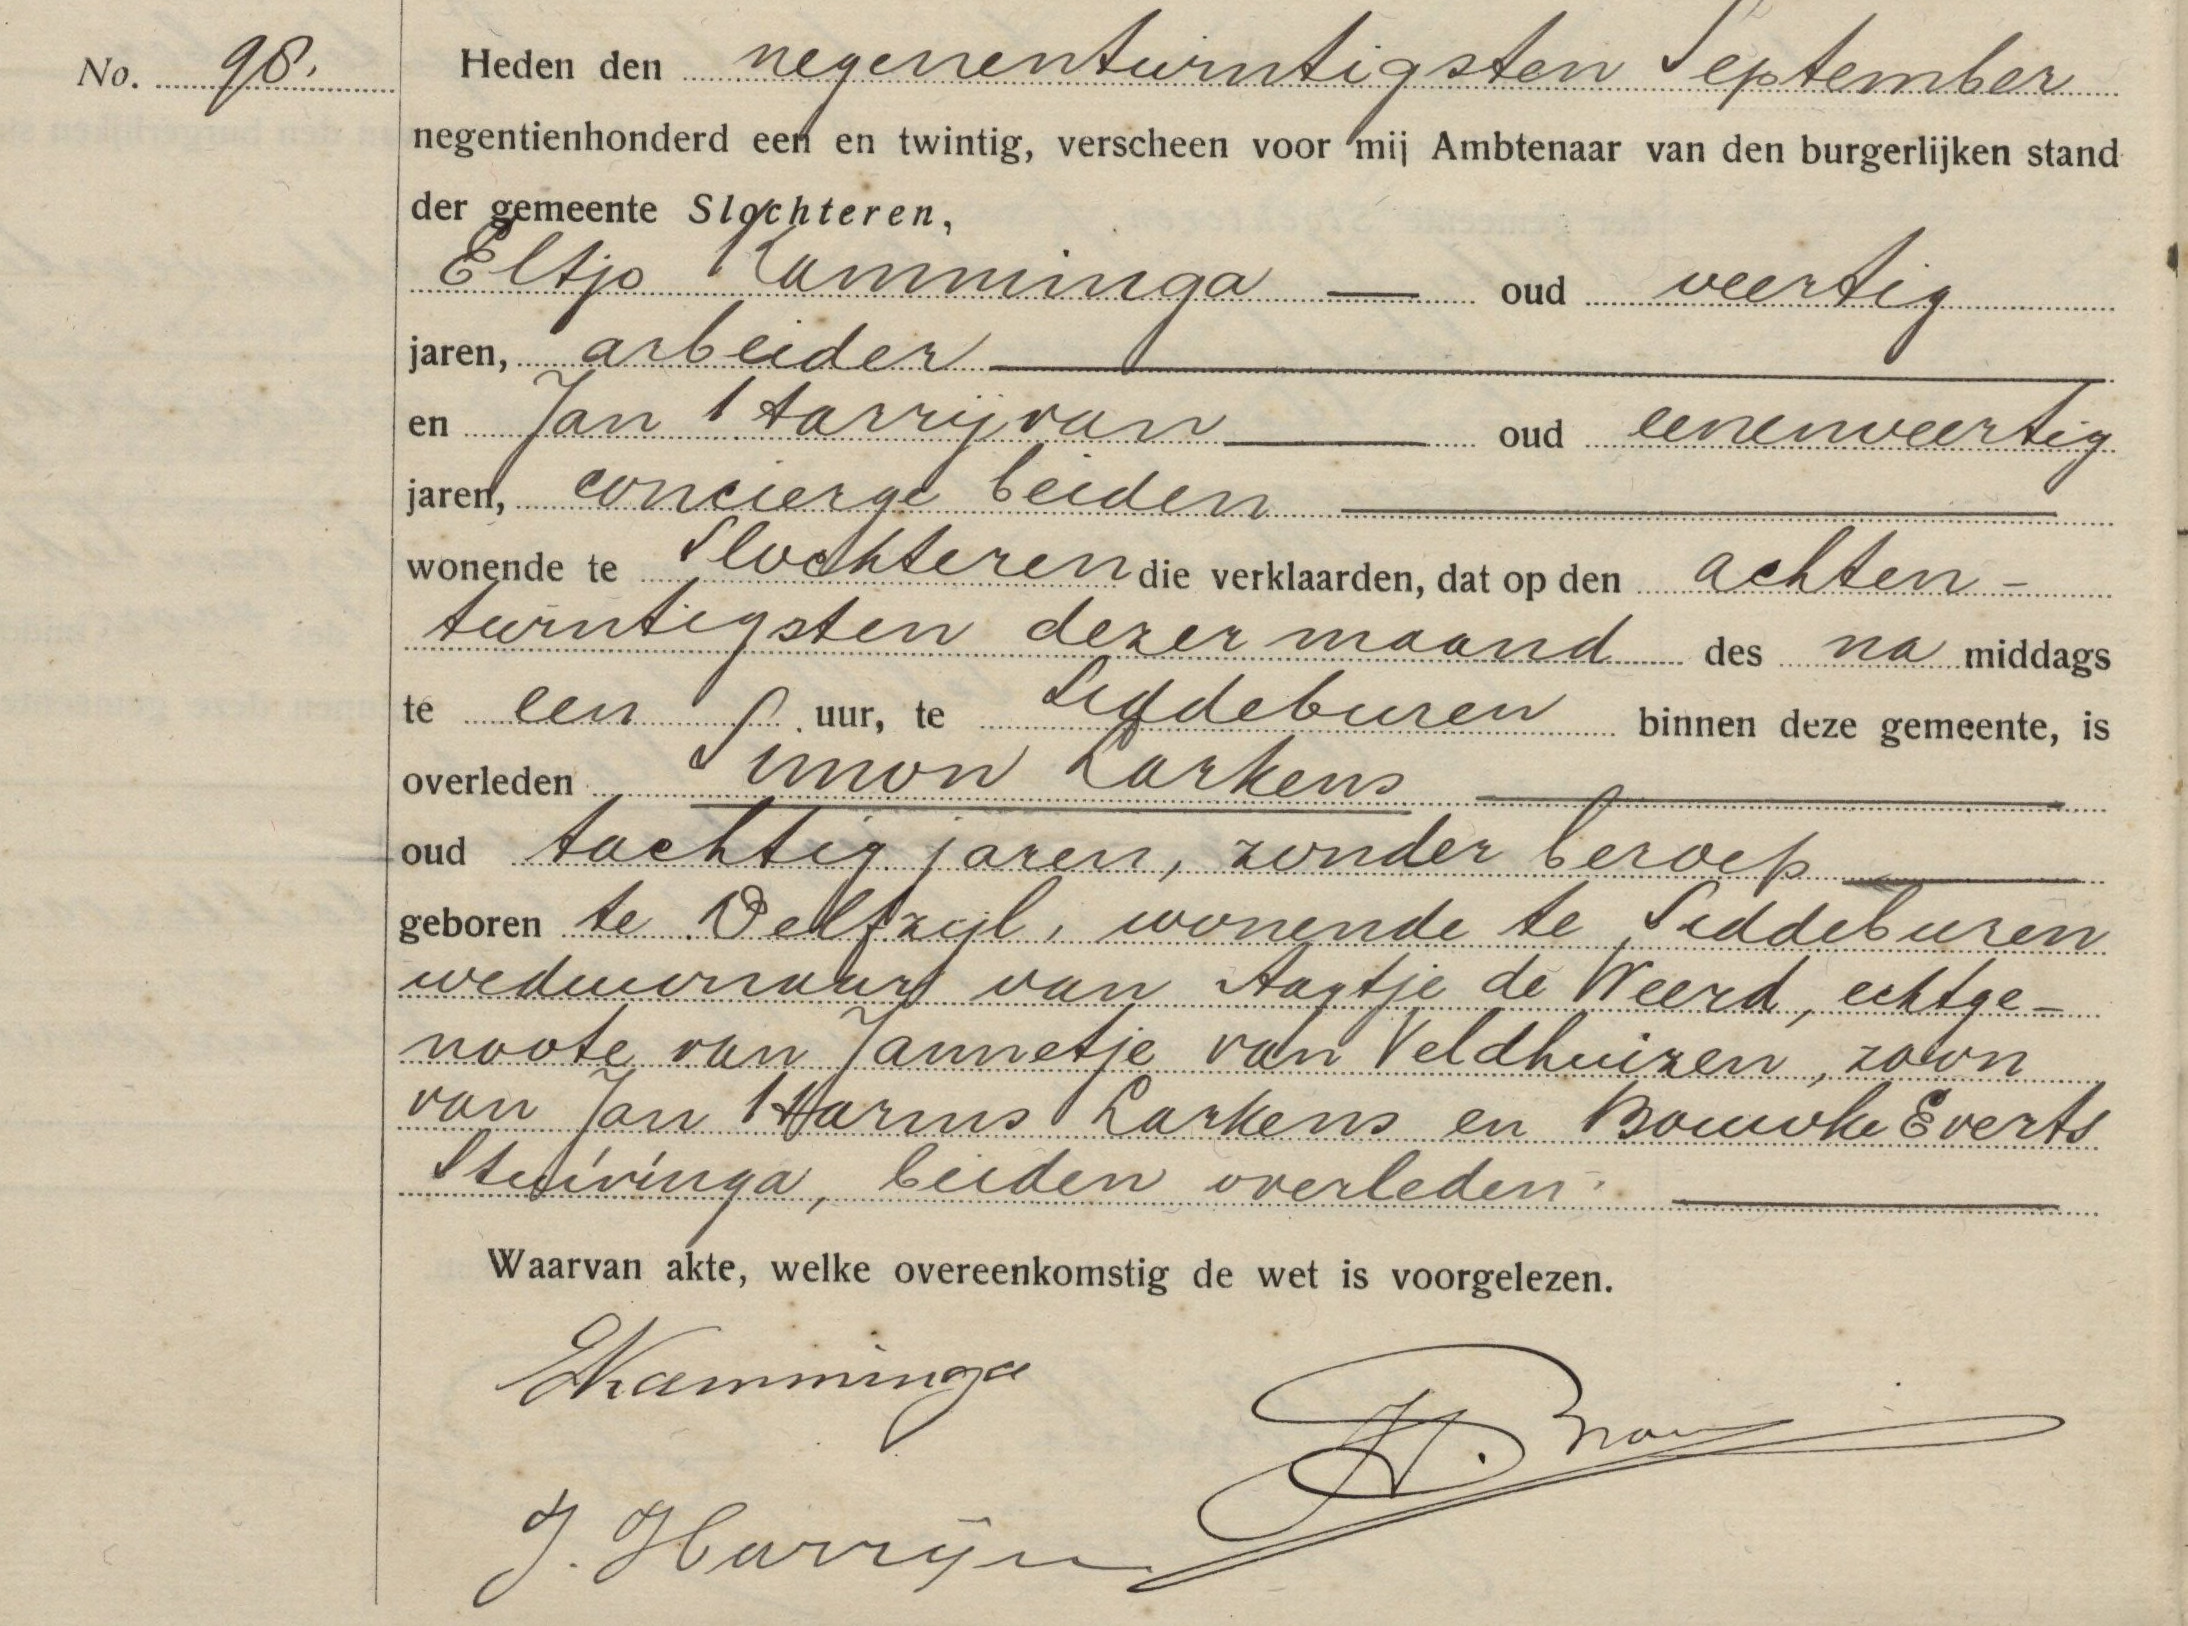 No. 98.
Heden den negenentwintigsten September
negentienhonderd een en twintig, verscheen voor mij Ambtenaar van den burgerlijken stand
der gemeente Slochteren,
Eltjo Kamminga — oud veertig
jaren, arbeider
en Jan Harrijvan oud eenenveertig
jaren, concierge beiden
wonende te Slochteren die verklaarden, dat op den achten-
twintigsten dezer maand des na middags
te een uur, te Siddeburen binnen deze gemeente, is
overleden Simon Larkens
oud tachtig jaren, zonder beroep
geboren te Delfzijl, wonende te Siddeburen
weduwnaar van Aagtje de Weerd, echtge-
noote van Jannetje van Veldhuizen, zoon
van Jan Harms Larkens en Bouwke Everts
Stuivinga, beiden overleden.
Waarvan akte, welke overeenkomstig de wet is voorgelezen.
EKamminga
J. Harrijvan